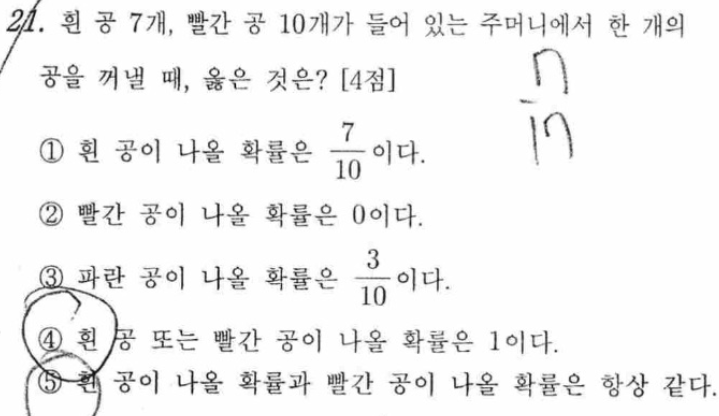 21. 흰 공 7개, 빨간 공 10개가 들어 있는 주머니에서 한 개의
공을 꺼낼 때, 옳은 것은? [4점]
7
17
① 흰 공이 나올 확률은 7/10 이다.
② 빨간 공이 나올 확률은 0이다.
③ 파란 공이 나올 확률은 3/10 이다.
④ 흰 공 또는 빨간 공이 나올 확률은 1이다.
⑤ 흰 공이 나올 확률과 빨간 공이 나올 확률은 항상 같다.